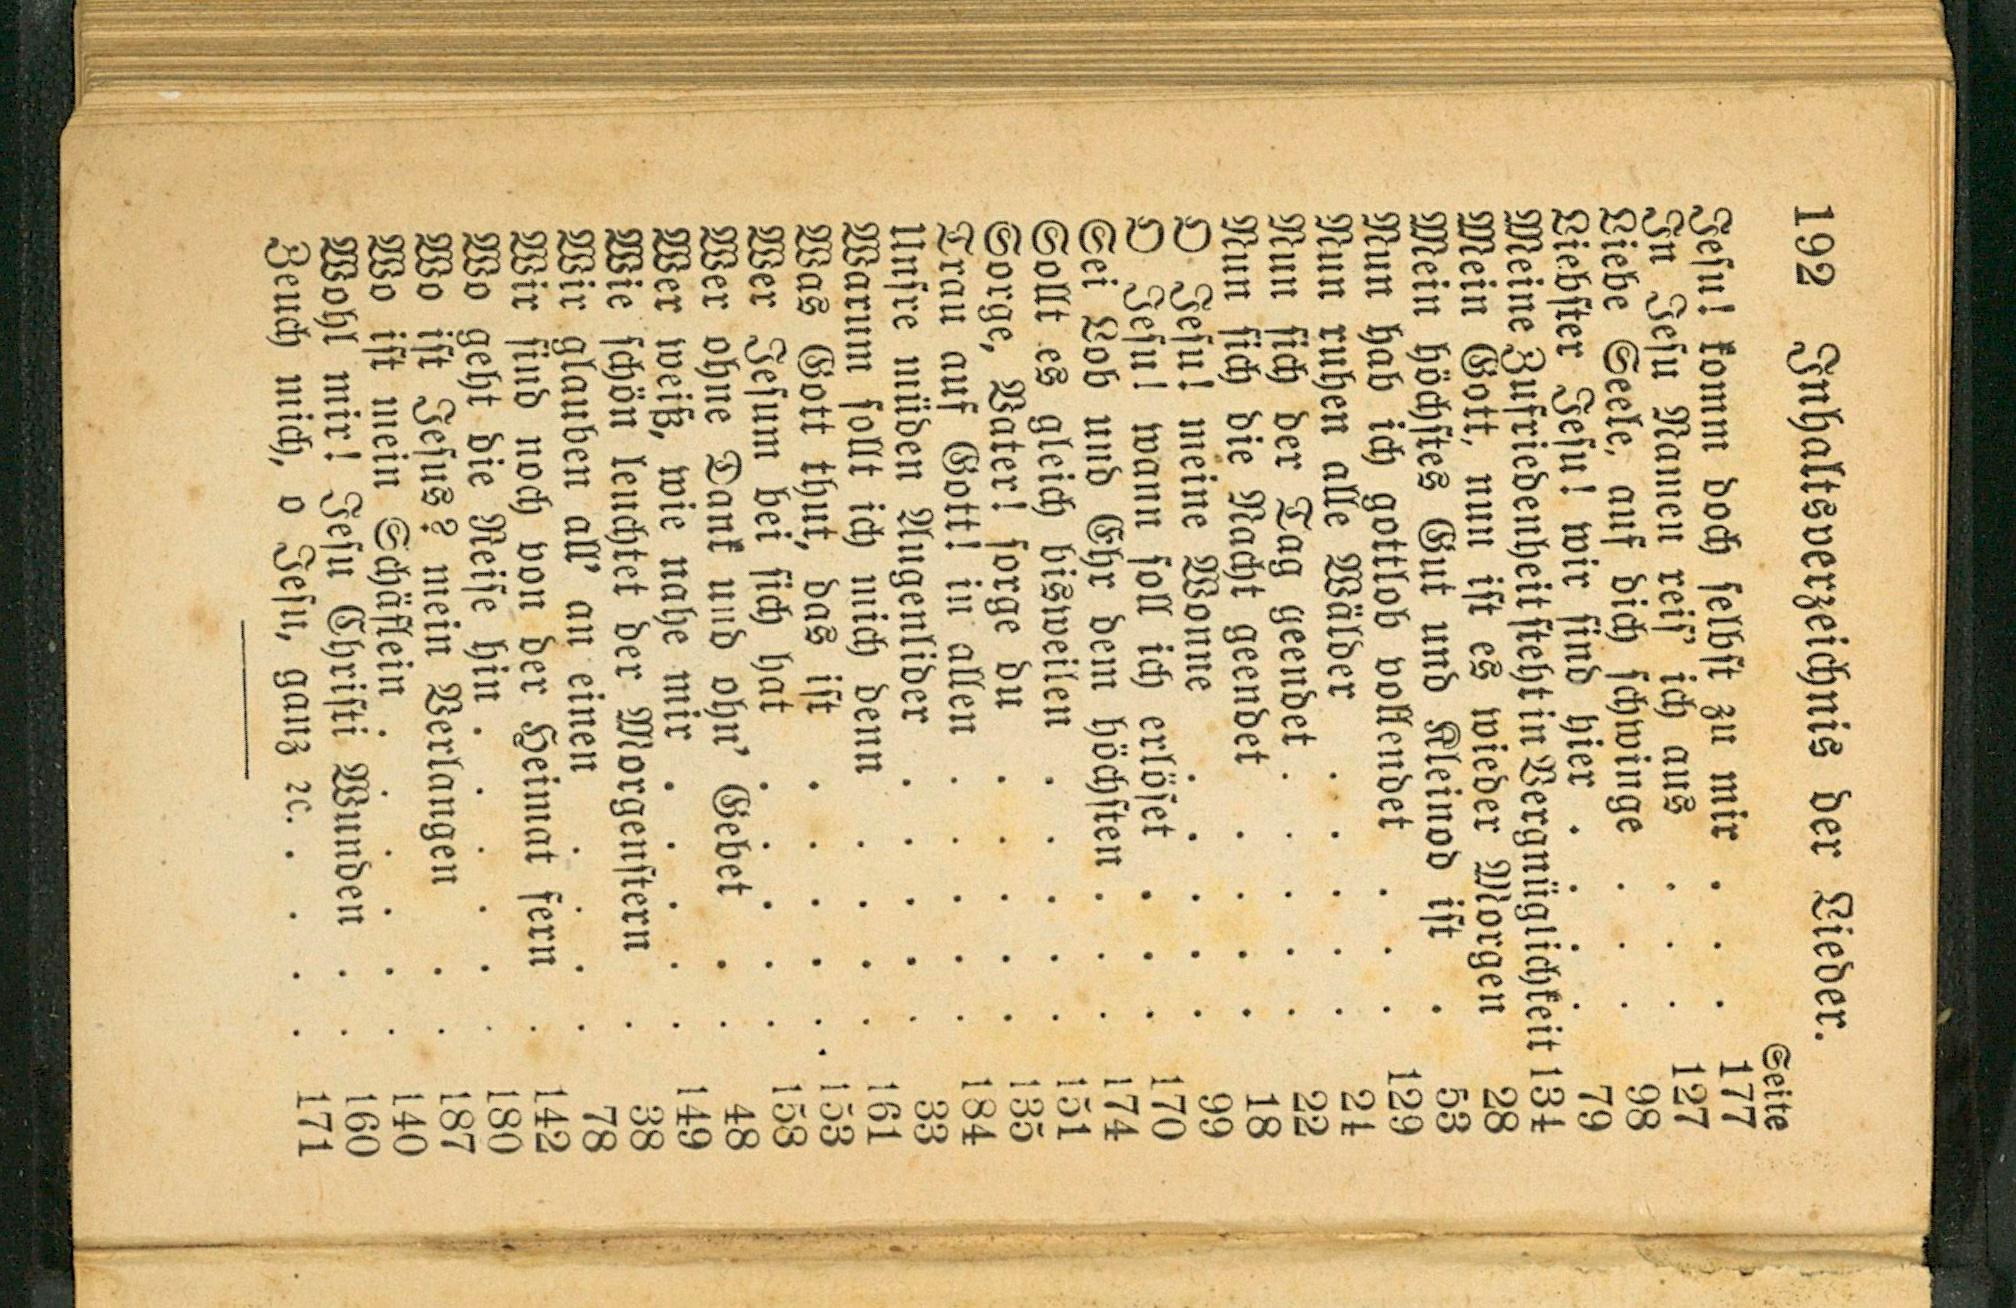 192 Inhaltsverzeichnis der Lieder.
Seite
Jesu! komm doch selbst zu mir . . . 177
In Jesu Namen reis' ich aus . . . 127
Liebe Seele, auf dich schwinge . . . 98
Liebster Jesu! wir sind hier . . . . 79
Meine Zufriedenheit steht in Vergnüglichkeit 134
Mein Gott, nun ist es wieder Morgen 28
Mein höchstes Gut und Kleinod ist . 53
Nun hab ich gottlob vollendet . . . 129
Nun ruhen alle Wälder . . . . . 24
Nun sich der Tag geendet . . . . . 22
Nun sich die Nacht geendet . . . . 18
O Jesu! meine Wonne . . . . . 99
O Jesu! wann soll ich erlöset . . . 170
Sei Lob und Ehr dem höchsten . . . 174
Sollt es gleich bisweilen . . . . . 151
Sorge, Vater! sorge du . . . . . 135
Trau auf Gott! in allen . . . . . 184
Unsre müden Augenlider . . . . . 33
Warum sollt ich mich denn . . . . 161
Was Gott thut, das ist . . . . . . 153
Wer Jesum bei sich hat . . . . . 158
Wer ohne Dank und ohn' Gebet . . 48
Wer weiß, wie nahe mir . . . . . 149
Wie schön leuchtet der Morgenstern . 38
Wir glauben all' an einen . . . . 78
Wir sind noch von der Heimat fern . 142
Wo geht die Reise hin . . . . . . 180
Wo ist Jesus? mein Verlangen . . 187
Wo ist mein Schäflein . . . . . . 140
Wohl mir! Jesu Christi Wunden . . 160
Zeuch mich, o Jesu, ganz ꝛc. . . . . 171